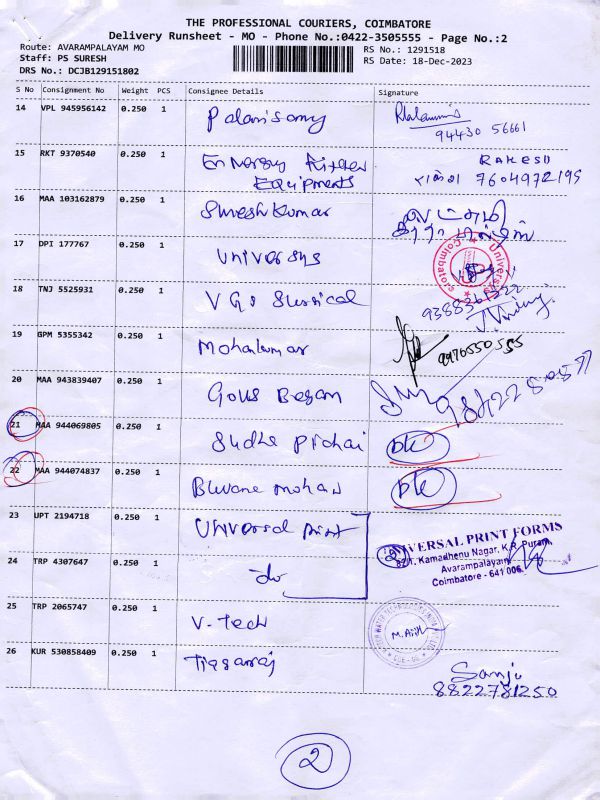 THE PROFESSIONAL COURIERS, COIMBATORE
Delivery Runsheet - MO - Phone No.:0422-3505555 - Page No.:2
Route: AVARAMPALAYAM MO
RS No.: 1291518
Staff: PS SURESH
RS Date: 18-Dec-2023
DRS No.: DCJB129151802
S No Consignment No Weight PCS Consignee Details Signature
14 VPL 945956142 0.250 1 Palanisamy
94430 56661
15 RKT 9370540 0.250 1 Kitchen RAKESH
Equipments 7604972195
16 MAA 103162879 0.250 1 Sureshkumar
17 DPI 177767 0.250 1 Universys
Coimbatore
18 TNJ 5525931 0.250 1 VGS Surgical
19 GPM 5355342 0.250 1 Mohankumar
9976550555
20 MAA 943839407 0.250 1 Gous Began
21 MAA 944069805 0.250 1 Sudha Pichai
22 MAA 944074837 0.250 1 Buvana Mohan
23 UPT 2194718 0.250 1 Universal Print
UNIVERSAL PRINT FORMS
Kamadhenu Nagar, K.R. Puram,
24 TRP 4307647 0.250 1 do
Avarampalayam
Coimbatore - 641 006.
25 TRP 2065747 0.250 1 V-Tech
26 KUR 530858409 0.250 1
Sanju
8822781250
2